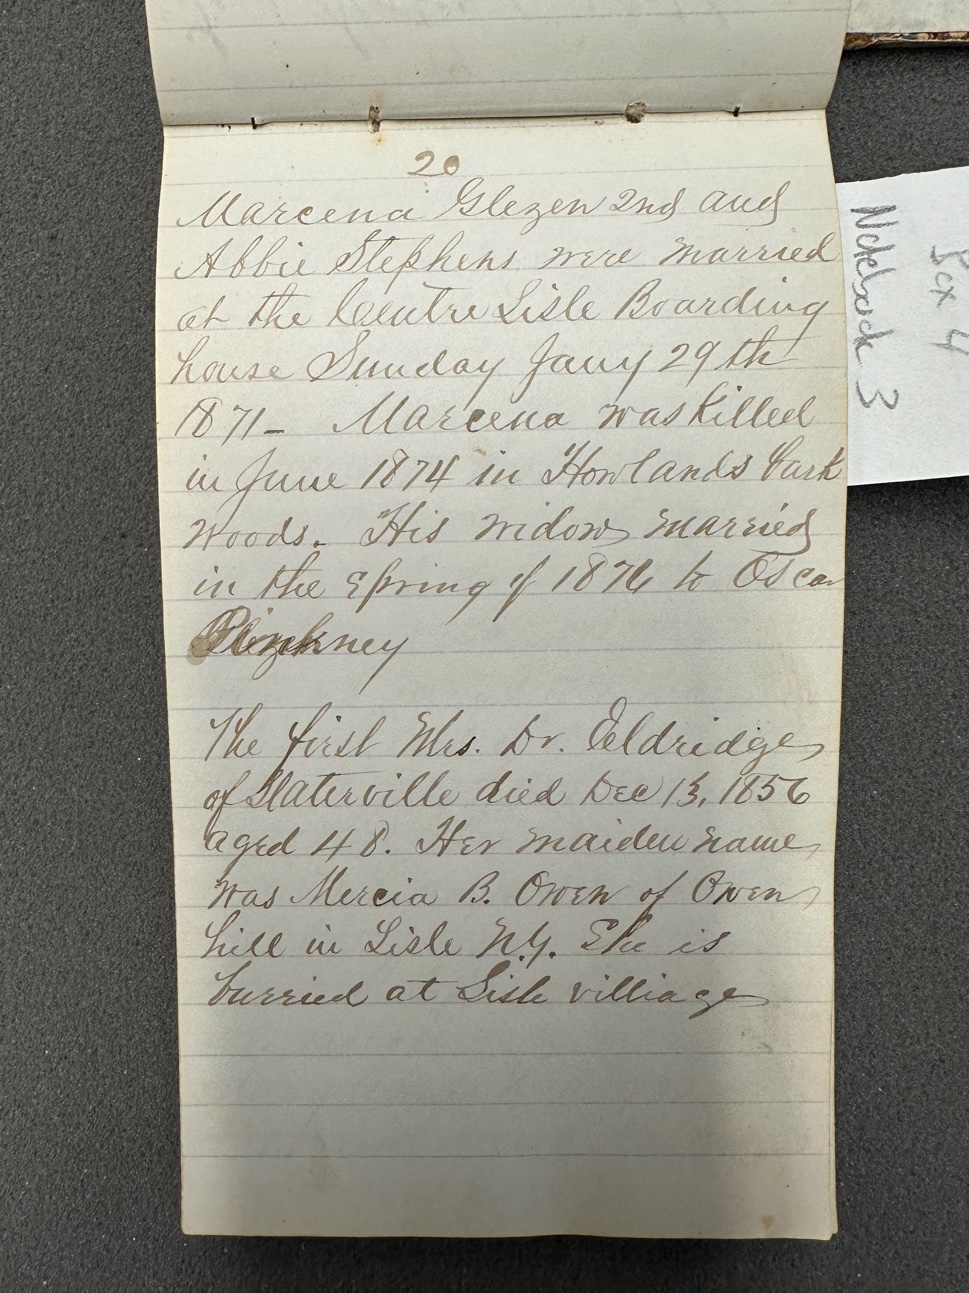 20
Marcena Glezen 2nd and
Abbie Stephens were married
at the Centre Lisle Boarding
house Sunday Jany 29th
1871- Marcena was killed
in June 1874 in Howlands
woods. His widow married
in the spring of 1876 to Oscar
Pinckney
The first Mrs. Dr. Eldridge
of Slaterville died Dec 13, 1856
aged 48. Her maiden name
was Mercia B. Owen of Owen
hill in Lisle N.Y. She is
burried at Lisle villiage
Box 4
Notebook 3